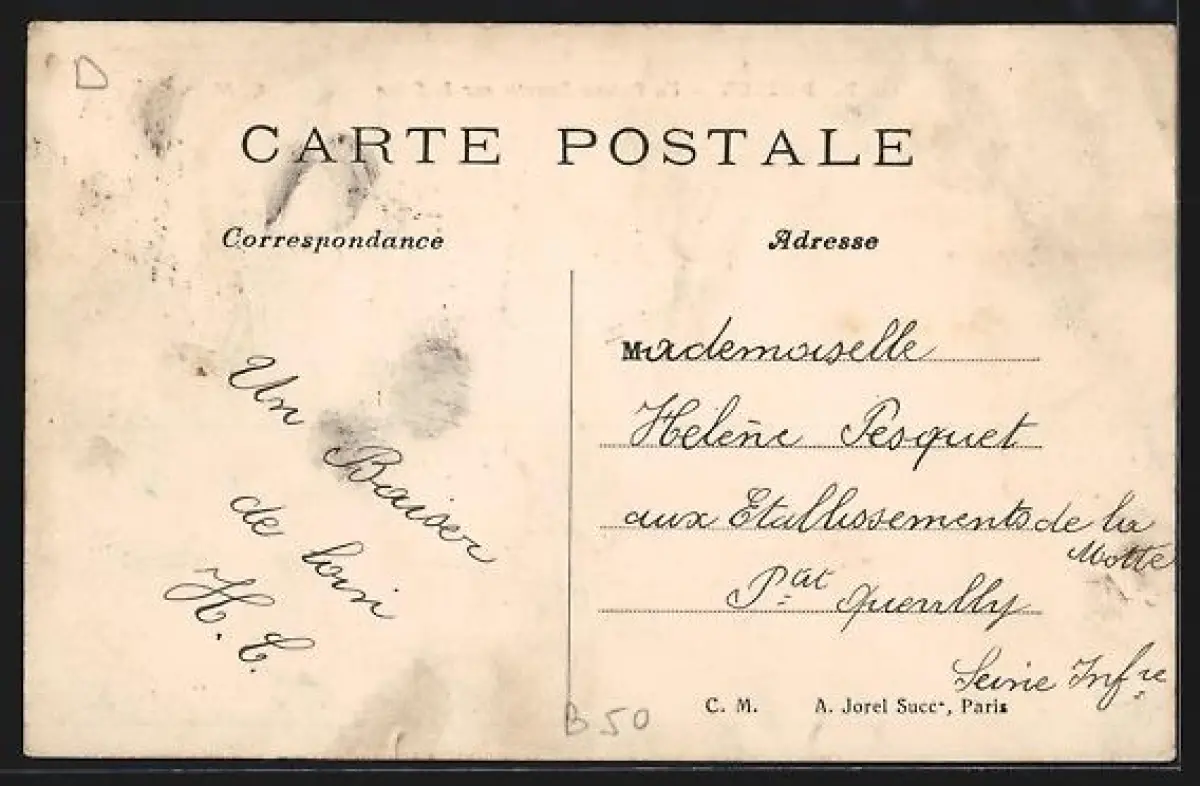 D
CARTE POSTALE
Correspondance
Adresse
Un Baiser
de loin
H. C.
Mademoiselle
Helène Pesquet
aux Etablissements de la
Motte
Pat Quevilly
Seine Infre
C. M. A. Jorel Succr, Paris
B 50